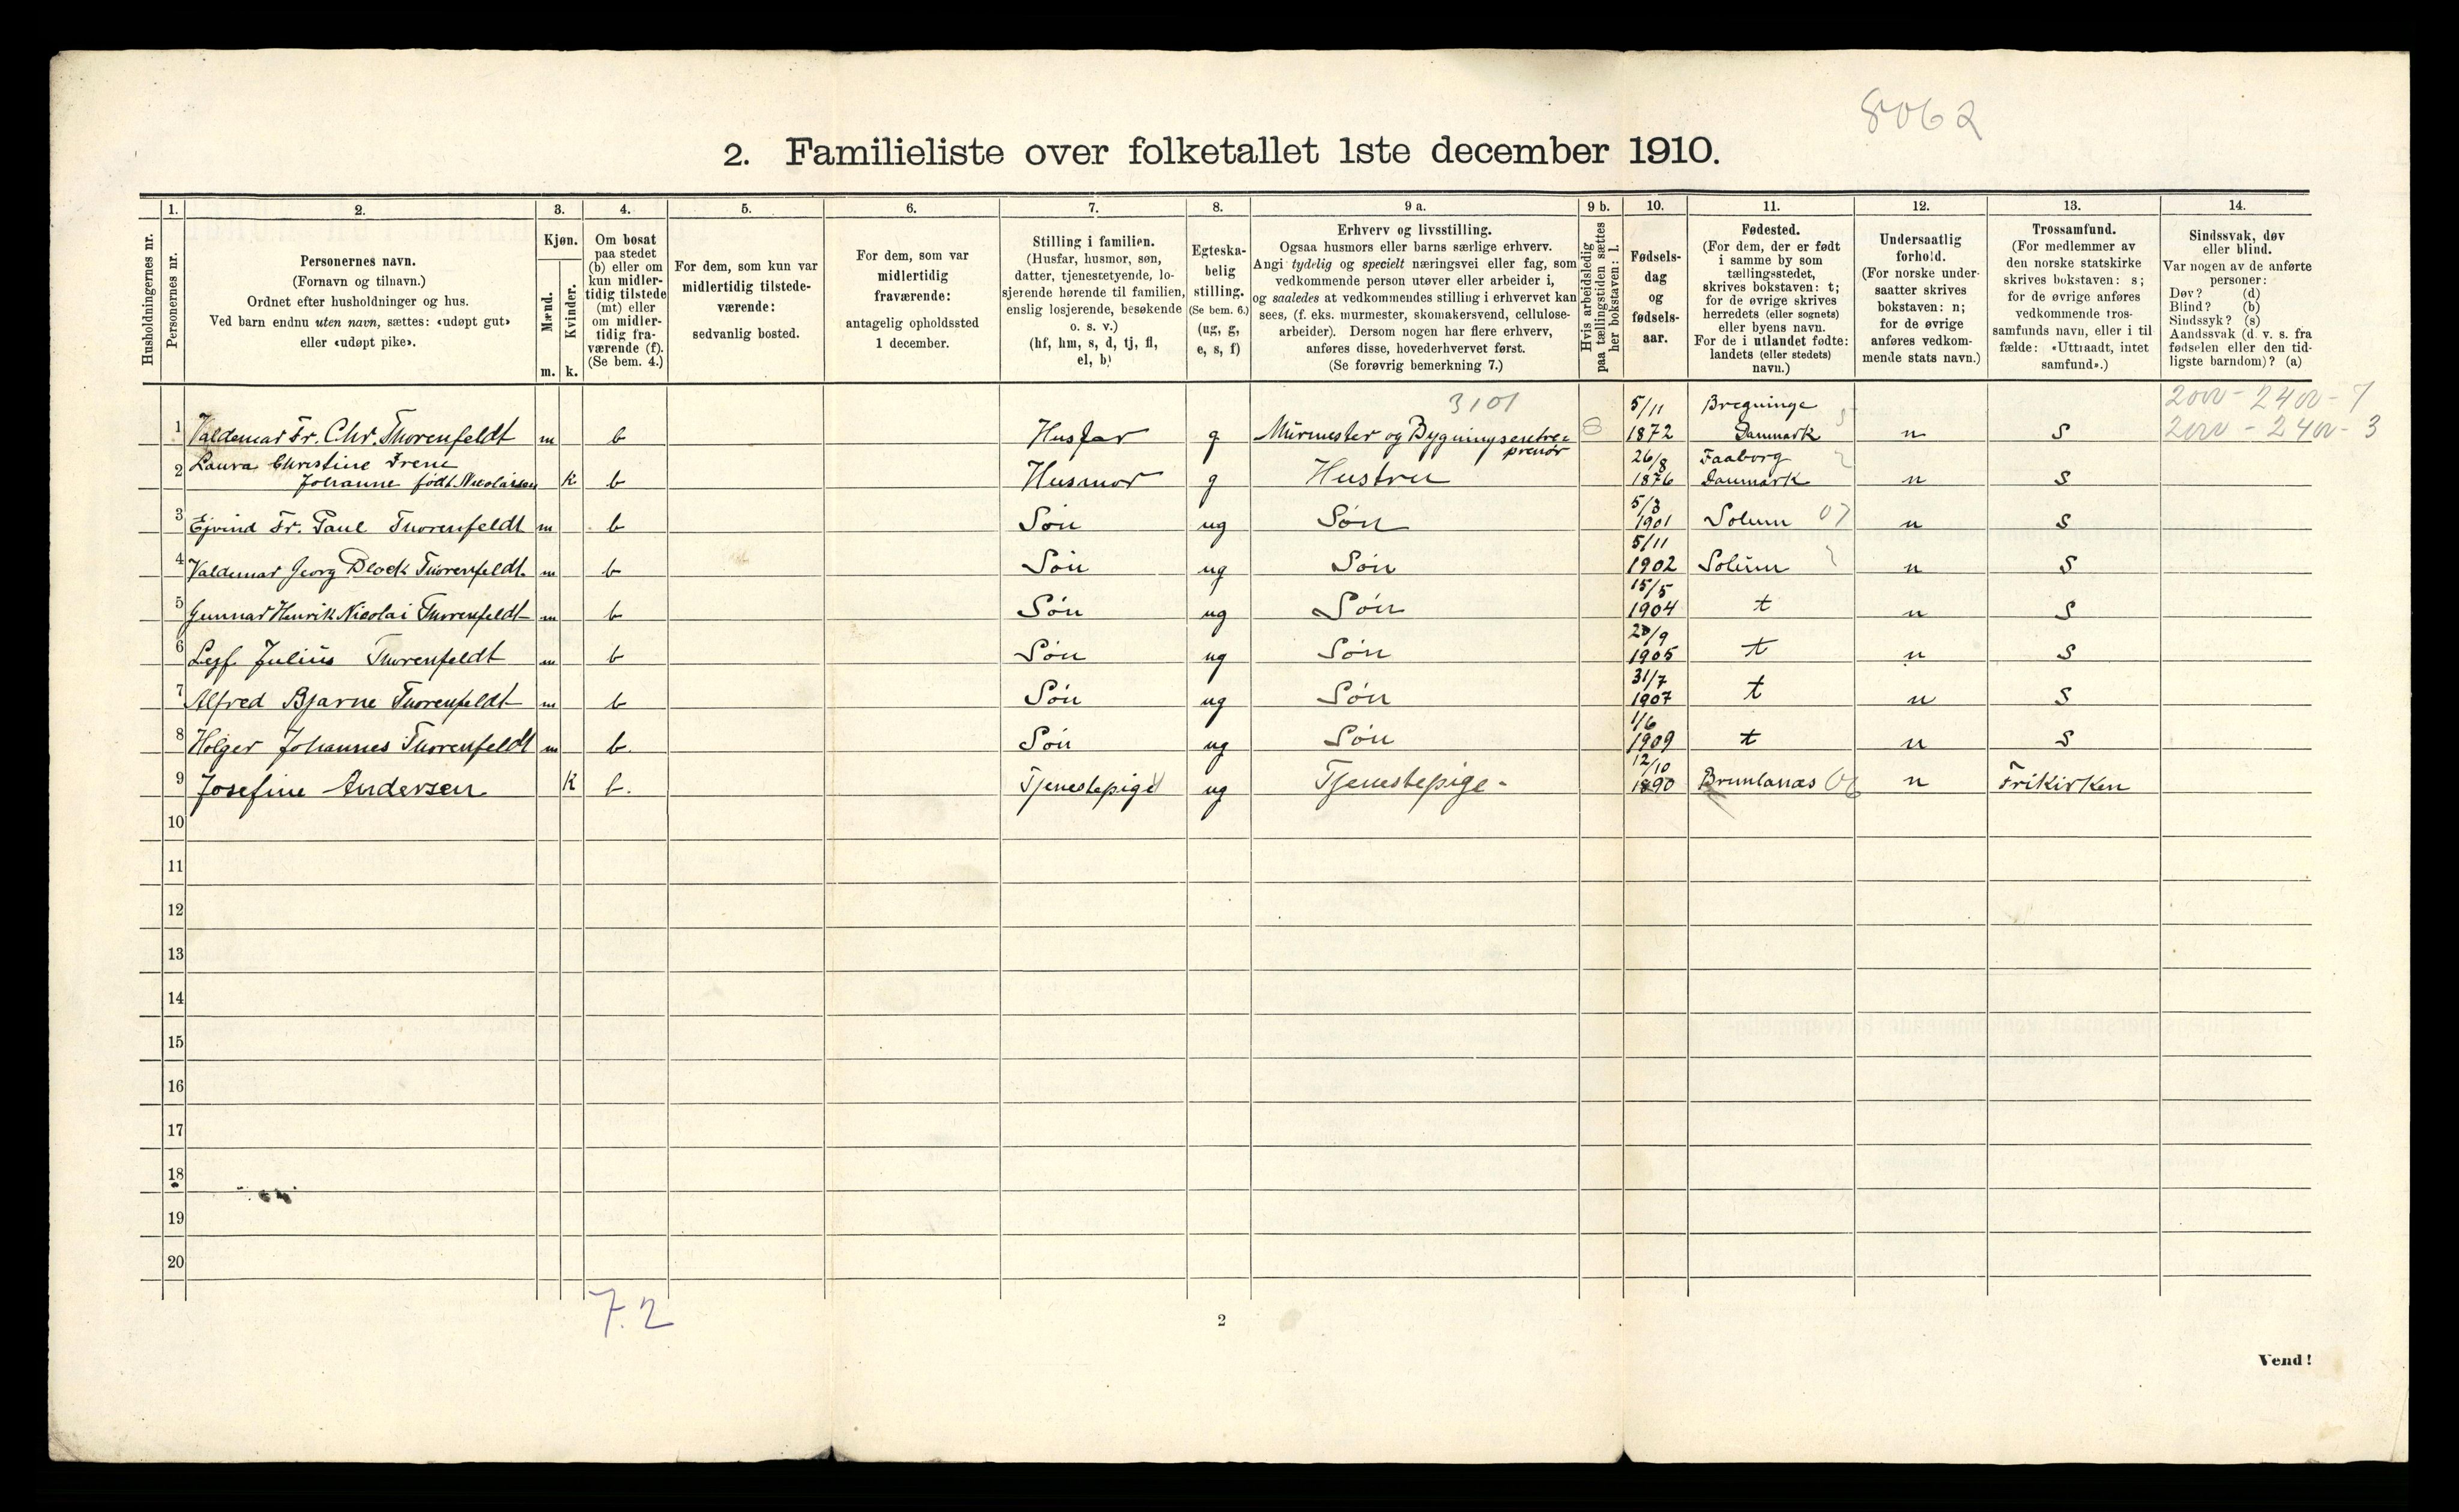 8062
2. Familieliste over folketallet 1ste december 1910.
Husholdningernes nr.
1.
Personernes nr.
2.
Personernes navn.
(Fornavn og tilnavn.)
Ordnet efter husholdninger og hus.
Ved barn endnu uten navn, sættes: «udøpt gut»
eller «udøpt pike».
3.
Kjøn.
Mænd.
Kvinder.
m. k.
4.
Om bosat
paa stedet
(b) eller om
kun midler-
tidig tilstede
(mt) eller
om midler-
tidig fra-
værende (f).
(Se bem. 4.)
5.
For dem, som kun var
midlertidig tilstede-
værende:
sedvanlig bosted.
6.
For dem, som var
midlertidig
fraværende:
antagelig opholdssted
1 december.
7.
Stilling i familien.
(Husfar, husmor, søn,
datter, tjenestetyende, lo-
sjerende hørende til familien,
enslig losjerende, besøkende
o. s. v.)
(hf, hm, s, d, tj, fl,
el, b)
8.
Egteska-
belig
stilling.
(Se bem. 6.)
(ug, g,
e, s, f)
9 a.
Erhverv og livsstilling.
Ogsaa husmors eller barns særlige erhverv.
Angi tydelig og specielt næringsvei eller fag, som
vedkommende person utøver eller arbeider i,
og saaledes at vedkommendes stilling i erhvervet kan
sees, (f. eks. murmester, skomakersvend, cellulose-
arbeider). Dersom nogen har flere erhverv,
anføres disse, hovederhvervet først.
(Se forøvrig bemerkning 7.)
9 b.
Hvis arbeidsledig
paa tællingstiden sættes
her bokstaven: l.
10.
Fødsels-
dag
og
fødsels-
aar.
11.
Fødested.
(For dem, der er født
i samme by som
tællingsstedet,
skrives bokstaven: t;
for de øvrige skrives
herredets (eller sognets)
eller byens navn.
For de i utlandet fødte:
landets (eller stedets)
navn.)
12.
Undersaatlig
forhold.
(For norske under-
saatter skrives
bokstaven: n;
for de øvrige
anføres vedkom-
mende stats navn.)
13.
Trossamfund.
(For medlemmer av
den norske statskirke
skrives bokstaven: s;
for de øvrige anføres
vedkommende tros-
samfunds navn, eller i til
fælde: «Uttraadt, intet
samfund».)
14.
Sindssvak, døv
eller blind.
Var nogen av de anførte
personer:
Døv? (d)
Blind? (b)
Sindssyk? (s)
Aandssvak (d. v. s. fra
fødselen eller den tid-
ligste barndom)? (a)
3101 5/11 Bregninge 2000 - 2400 - 7
1 Valdemar Fr. Chr. Thorenfeldt m b Husfar g Murmester og Bygningsentre= 1872 Danmark n S 2000 - 2400 - 3
prenør
Laura Christine Irene 26/8 Faaborg
2 Johanne født Nicolaisen k b Husmor g Hustru 1876 Danmark n S
5/3
3 Ejvind Fr. Paul Thorenfeldt m b Søn ug Søn 1901 Solum 07 n S
5/11
4 Valdemar Georg Block Thorenfeldt. m b Søn ug Søn 1902 Solum n S
15/5
5 Gunnar Henrik Nicolai Thorenfeldt m b Søn ug Søn 1904 t n S
20/9
6 Lejf Julius Thorenfeldt m b Søn ug Søn 1905 t n S
31/7
7 Alfred Bjarne Thorenfeldt m b Søn ug Søn 1907 t n S
1/6
8 Holger Johannes Thorenfeldt m b. Søn ug Søn 1909 t n S
12/10
9 Josefine Andersen k b. Tjenestepige ug Tjenestepige - 1890 Brunlanæs 06 n Frikirken
10
11
12
13
14
15
16
17
18
19
20
7. 2
2
Vend!